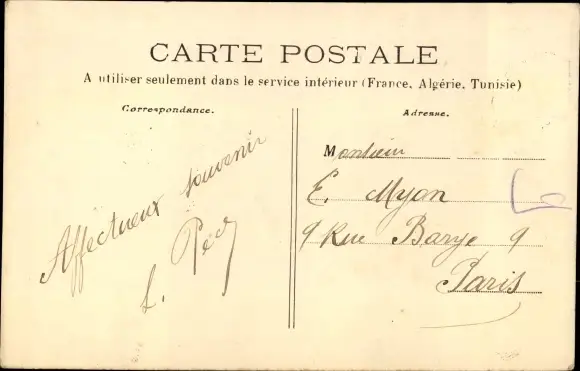 CARTE POSTALE
A utiliser seulement dans le service intérieur (France, Algérie, Tunisie)
Correspondance.
Affectueux souvenir
L.
Adresse.
Monsieur
E. Myon
9 Rue Barye 9
Paris